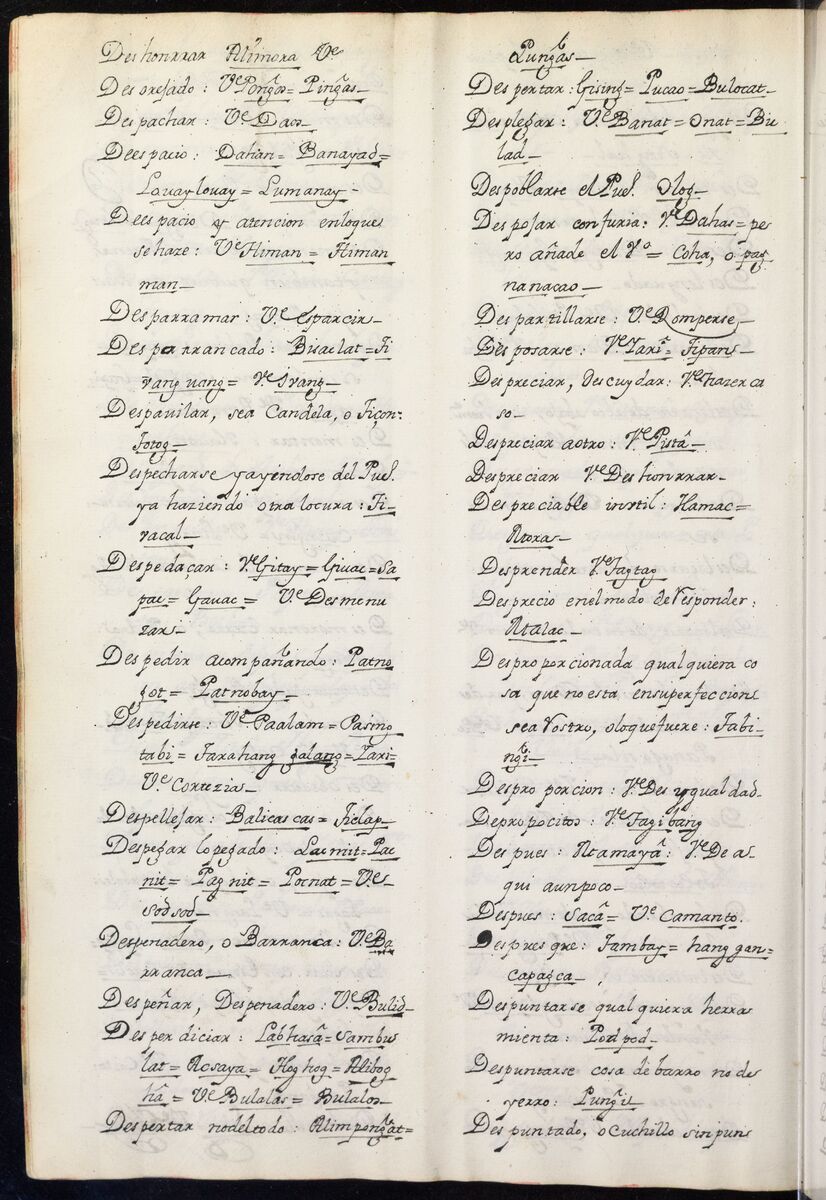 Deshonrrar Alimora Vᵉ
Desorejado: Vᵉ Pong̃as= Ping̃as_
Despachar: Vᵉ Daos_
Deespacio: Dahan= Banayad=
Louaylouay= Lumanay.
Deespacio y atencion enloque
sehaze: Vᵉ Himan= Himan
man_
Desparramar: Vᵉ esparcir_
Desperrancado: Bisaclat= Ti
vang uang= Vᵉ Ivang_
Despauilar, sea Candela, o Tiçon:
Totog_
Despecharse yayendose del Puel.
ya haziendo otra locura: Ti_
vacal_
Despedaçar: Vᵉ Gitay= Giuac= Sa
pac= Gauac= Vᵉ Desmenu
zar_
Despedir acompañando: Patno
got= Patnobay_
Despedirse: Vᵉ Paalam= Pasing
tabi= Tarahang galang= Tari=
Vᵉ Cortezia_
Despellejar: Balicascas= Ticlap_
Despegar lopegado: Lacmit= Pac
nit= Pagnit= Pocnat= Vᵉ
sodsod_
Despenadero, o Barranca: Vᵉ Ba
rranca_
Despeñar, Despenadero: Vᵉ Bulid_
Desperdiciar: Labhasâ= Sambu
lat= Acsaya= Hoghog= Alibog
hâ= Vᵉ Bulalas= Bulalos_
Despertar nodeltodo: Alimpong̃at=
Pung̃as_
Despertar: Gising= Pucao= Bulocat_
Desplegar: Vᵉ Banat= Onat= Bu
lad_
Despoblarse el Puel. Olog_
Desposar confuria: Vᵉ Dahas= pe
ro añade el Vᵒ= Coha, o pag
nanacao_
Despartillarse: Vᵉ Romperse_
Desposarse: Vᵉ Tari= Tipan_
Despreciar, descuydar: Vᵉ hazer ca
so_
Despreciar aotro: Vᵉ Pistâ_
Despreciar Vᵉ Deshonrrar_
Despreciable invtil: Hamac=
Atora_
Desprender Vᵉ Tagtag
Desprecio enelmodo deVesponder:
Atalac_
Desproporcionada qualquiera co
sa que noesta ensuperfeccion
sea Vostro, oloquefuere: Tabi_
ng̃i_
Desproporcion: Vᵉ Desygualdad_
Depropocitos: Vᵉ Tagibang
Despues: Atamayâ: Vᵉ De a_
qui aunpoco_
Despues: Sacâ= Vᵉ Camanto.
Despues que: Tambay= hanggan=
capagca_
Despuntarse qualquiera herra
mienta: Podpod_
Despuntarse cosa debarro node
yerro: Pung̃il
Despuntado, o Cuchillo sinpun